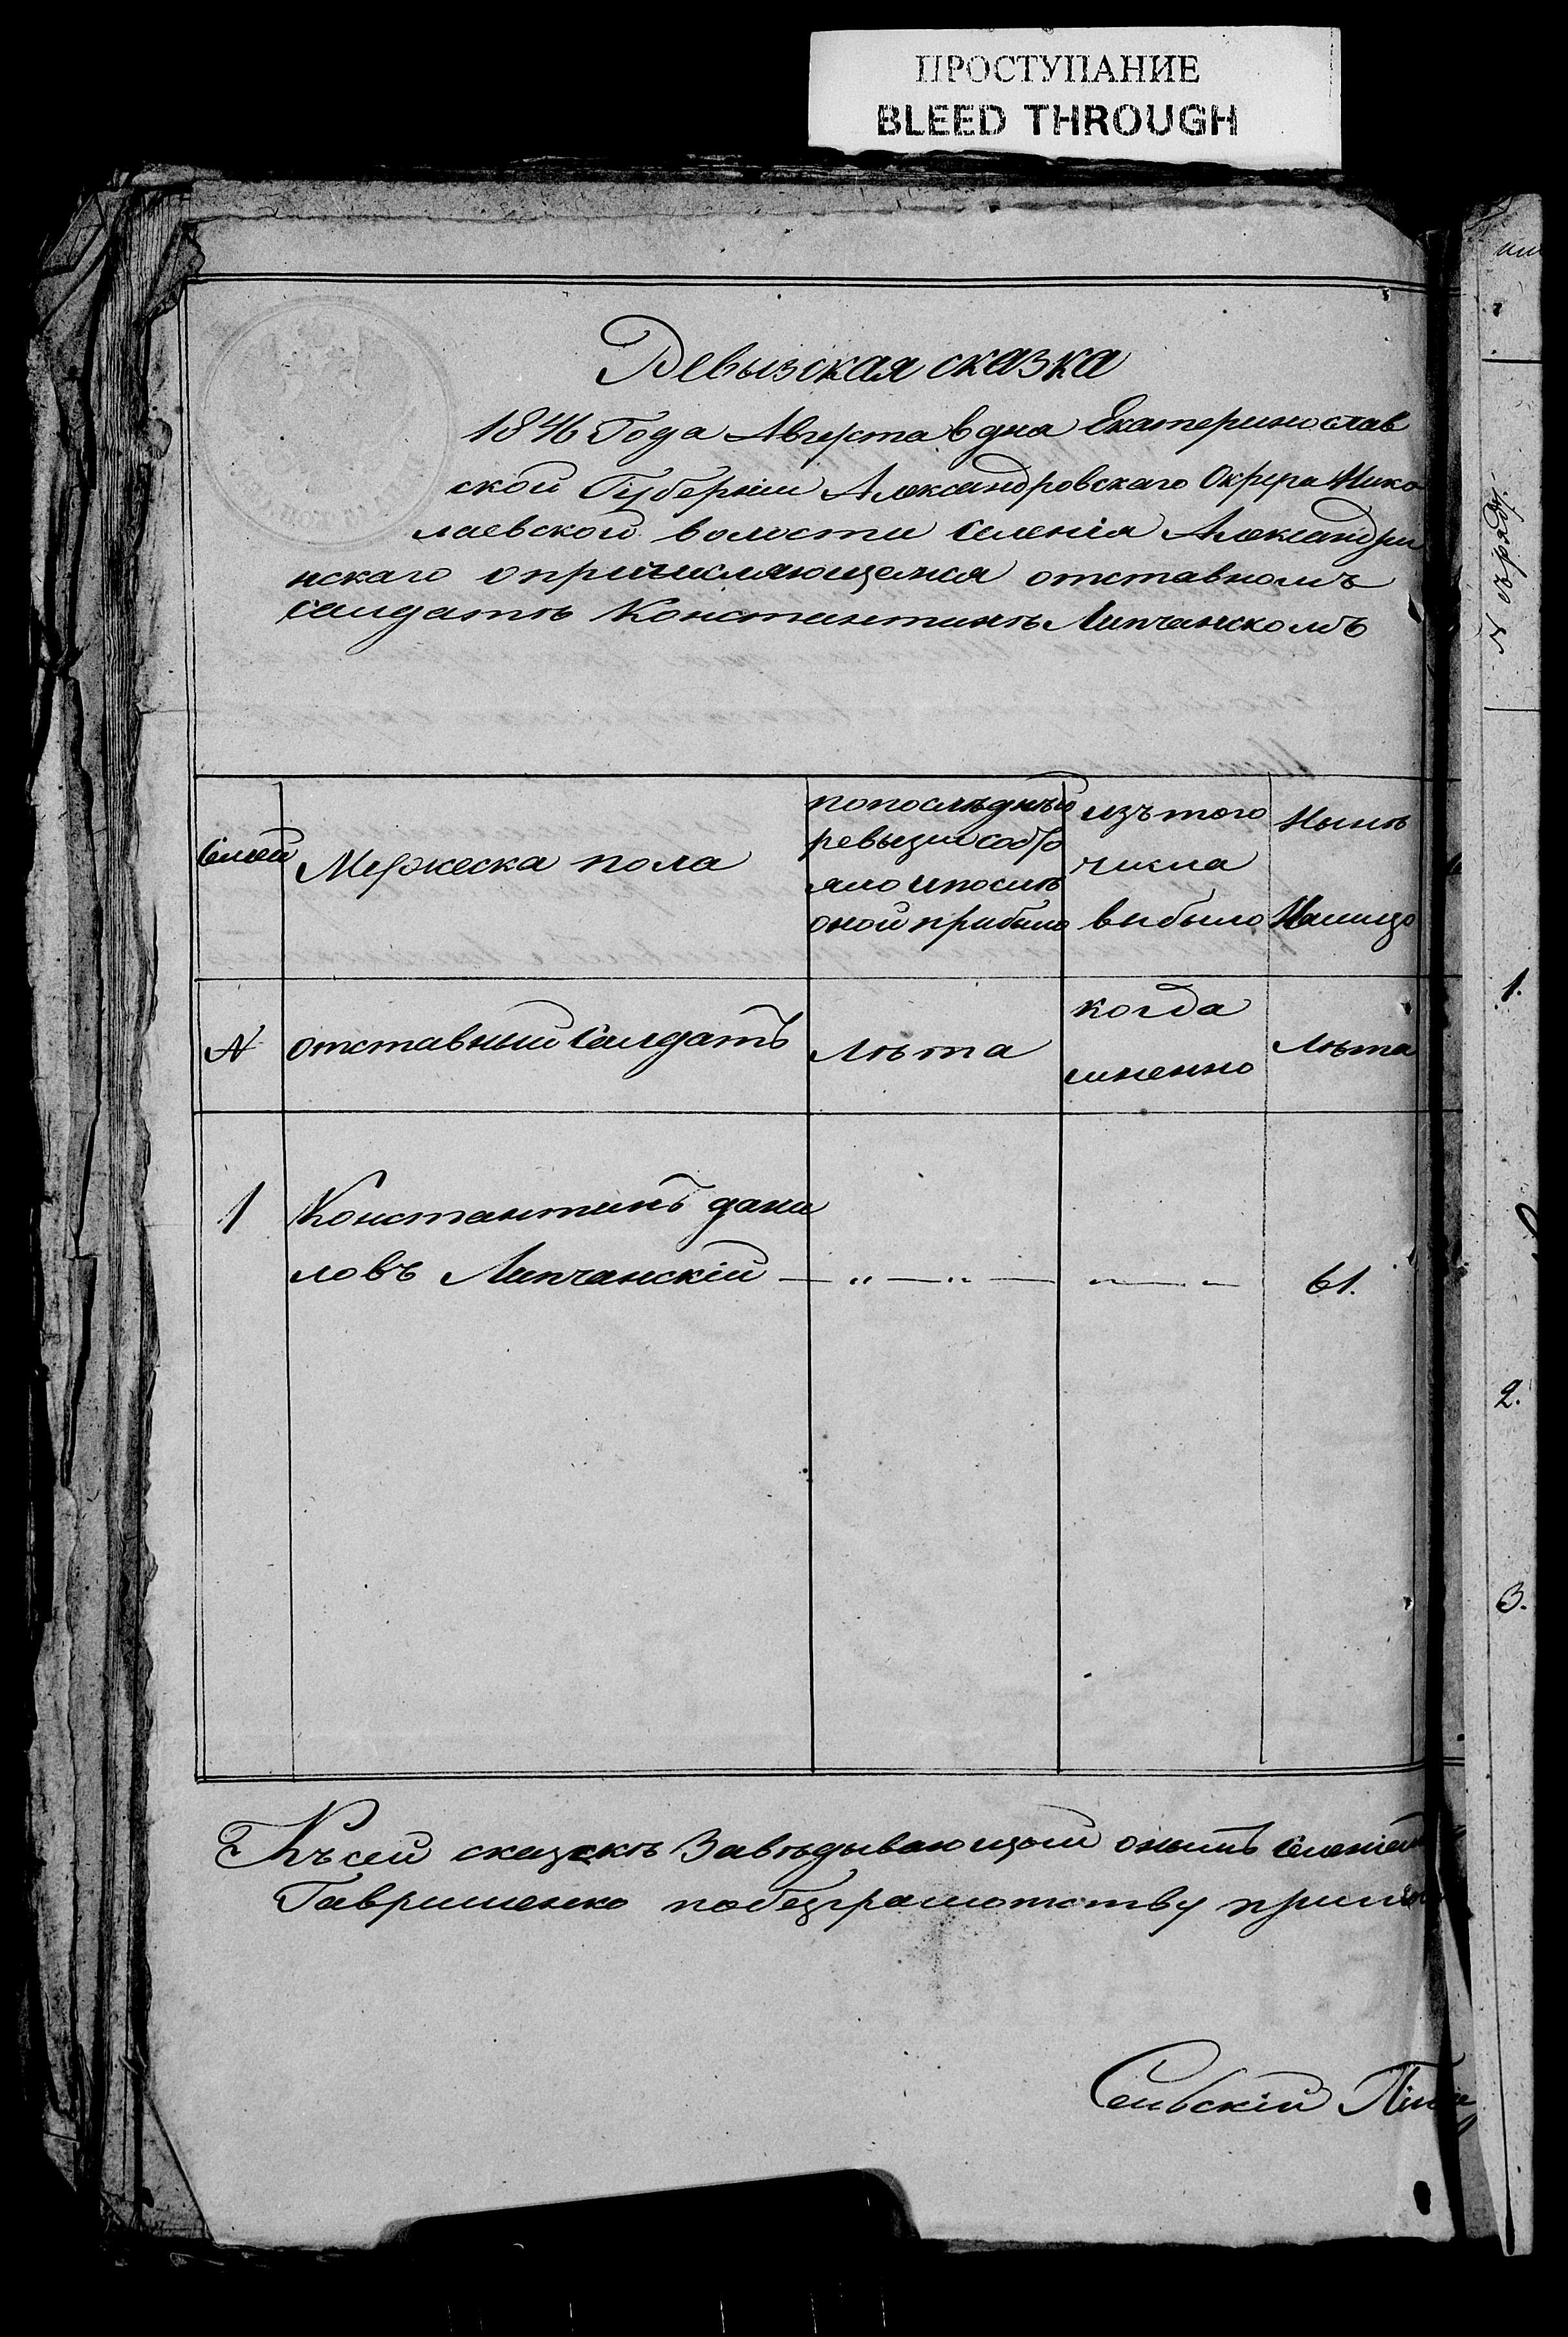 ПРОСТУПАНИЕ
BLEED THROUGH
Ревызская сказка
1846 Года Августа 6 дна Екатеринослав
ской Губерніи Александровскаго Округа Нико
лаевской волости Селенія Александри
нскаго опричисляющемся отставномъ
Салдатѣ Константинѣ Липчанскомъ
Семей
Мужеска пола
попослѣднѣй
ревызіи состо
яло ипослѣ
оной прибыло
изътого
числа
выбыло
Нынѣ
Налицо
№
отставный Салдатъ
Лѣта
когда
имненно
Лѣта
1
Константинъ дани
ловъ Липчанскій — „ — „ — „ — „ 61.
Къ сей сказскѣ Завѣдывающій онымъ Селеніем
Гавришенко побезграмотству
Сельскій
№ поряду.
1.
2.
3.